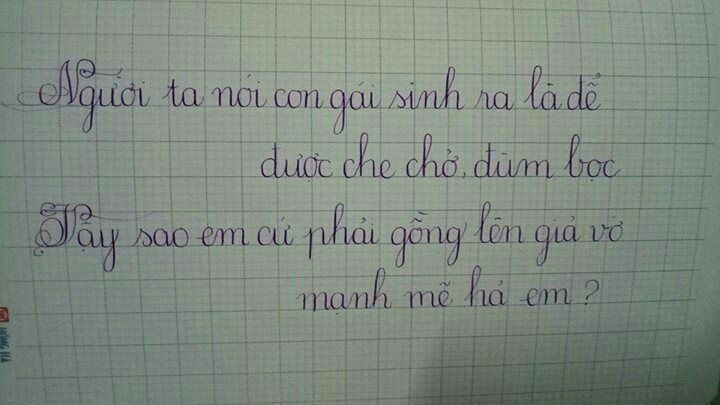 Người ta nói con gái sinh ra là để
được che chở, đùm bọc
Vậy sao em cứ phải gồng lên giả vờ
mạnh mẽ hả em?
HỒNG HÀ